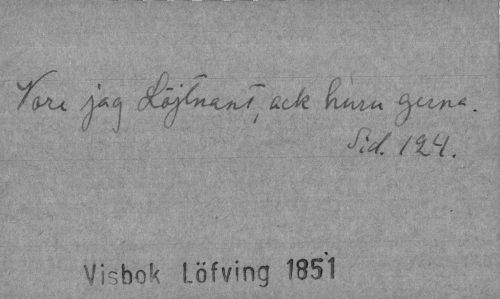 Vore jag Löjtnant, ack huru gerna.
Sid. 124.
Visbok Löfving 1851